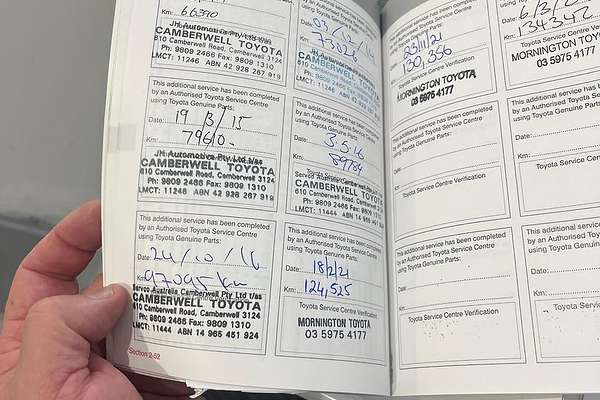 Km: 66390
JH Automotive Pty Ltd t/as
CAMBERWELL TOYOTA
610 Camberwell Road, Camberwell 3124
Ph: 9809 2466 Fax: 9809 1310
LMCT: 11246 ABN 42 928 267 919
This additional service has been completed
by an Authorised Toyota Service Centre
using Toyota Genuine Parts:
Date: 19/3/15
Km: 79610
JH Automotive Pty Ltd t/as
CAMBERWELL TOYOTA
610 Camberwell Road, Camberwell 3124
Ph: 9809 2466 Fax: 9809 1310
LMCT: 11246 ABN 42 928 267 919
This additional service has been completed
by an Authorised Toyota Service Centre
using Toyota Genuine Parts:
Date: 24/10/16
Km: 97095km
Servco Australia Camberwell Pty Ltd t/as
CAMBERWELL TOYOTA
610 Camberwell Road, Camberwell 3124
Ph: 9809 2466 Fax: 9809 1310
LMCT: 11444 ABN 14 965 451 924
Section 2-52
Km:
73026
CAMBERWELL TOYOTA
610 Camberwell Road, Camberwell 3124
This additional service has been completed
by an Authorised Toyota Service Centre
using Toyota Genuine Parts:
Date: 3.5.16
Km: 89784
CAMBERWELL TOYOTA
610 Camberwell Road, Camberwell 3124
Ph: 9809 2466 Fax: 9809 1310
This additional service has been completed
by an Authorised Toyota Service Centre
using Toyota Genuine Parts:
Date: 18/2/21
Km: 124,525
MORNINGTON TOYOTA
03 5975 4177
This additional service has been completed
by an Authorised Toyota Service Centre
using Toyota Genuine Parts:
23/11/21
130,356
MORNINGTON TOYOTA
03 5975 4177
This additional service has been completed
by an Authorised Toyota Service Centre
using Toyota Genuine Parts:
Date:
Km:
Toyota Service Centre Verification
This additional service has been completed
by an Authorised Toyota Service Centre
using Toyota Genuine Parts:
Date:
Km:
Toyota Service Centre Verification
134342
MORNINGTON TOYOTA
03 5975 4177
This additional service has been
by an Authorised Toyota
using Toyota Genuine Parts:
Date:
Km:
Toyota Service Centre
This additional service has been
by an Authorised Toyota
using Toyota Genuine Parts:
Date:
Km:
Toyota Service Centre